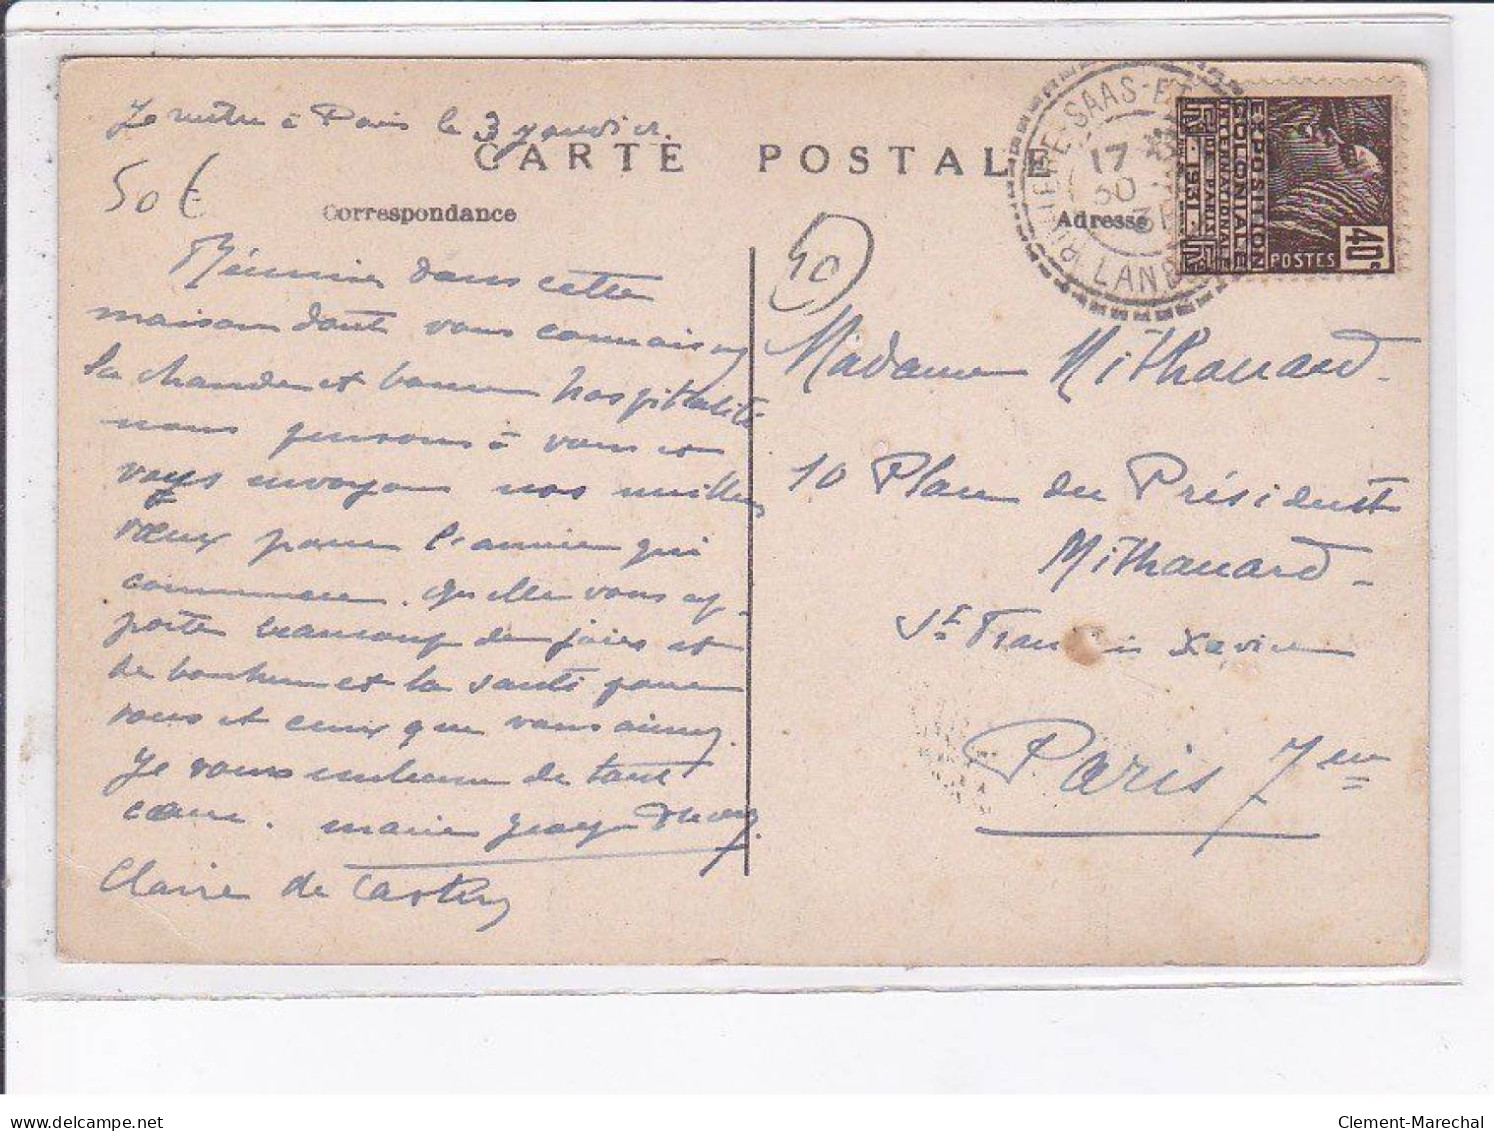 Je rentre à Paris le 3 janvier.
CARTE POSTALE
50€
Correspondance
Adresse
40
RIVIERE-SAAS-ET
LANDES
17
30
31
EXPOSITION
COLONIALE
INTERNATIONALE
PARIS
1931
POSTES
40c
Réunies dans cette
maison dont vous connaissez
la chaude et bonne hospitalité
nous pensons à vous et
vous envoyons nos meilleurs
vœux pour l'année qui
commence. Qu'elle vous ap-
porte beaucoup de joies et
de bonheur et la santé pour
vous et ceux que vous aimez.
Je vous embrasse de tout
cœur. Marie
Claire de
Madame Mithouard
10 Place du Président
Mithouard
St François Xavier
Paris 7eme
delcampe.net
Clement-Marechal